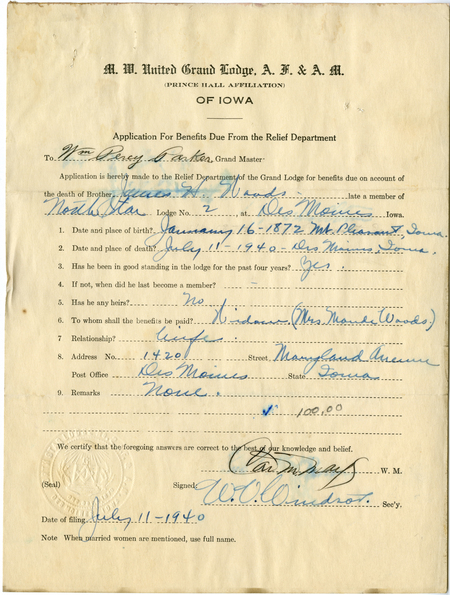 M. W. United Grand Lodge, A. F. & A. M.
(PRINCE HALL AFFILIATION)
OF IOWA
Application For Benefits Due From the Relief Department
To Wm Percy Parker, Grand Master
Application is hereby made to the Relief Department of the Grand Lodge for benefits due on account of
the death of Brother James H. Woods late a member of
North Star Lodge No. 2, at Des Moines Iowa.
1. Date and place of birth? January 16-1872 Mt. Pleasant, Iowa
2. Date and place of death? July 11-1940 - Des Moines, Iowa.
3. Has he been in good standing in the lodge for the past four years? Yes.
4. If not, when did he last become a member?
5. Has he any heirs? No
6. To whom shall the benefits be paid? Widow (Mrs Maude Woods)
7 Relationship? Wife
8 Address No. 1420 Street Maryland Avenue
Post Office Des Moines State Iowa
9. Remarks None.
$ 100.00
We certify that the foregoing answers are correct to the best of our knowledge and belief.
W. M.
(Seal) Signed: Windsor. Sec'y.
Date of filing July 11-1940
Note When married women are mentioned, use full name.